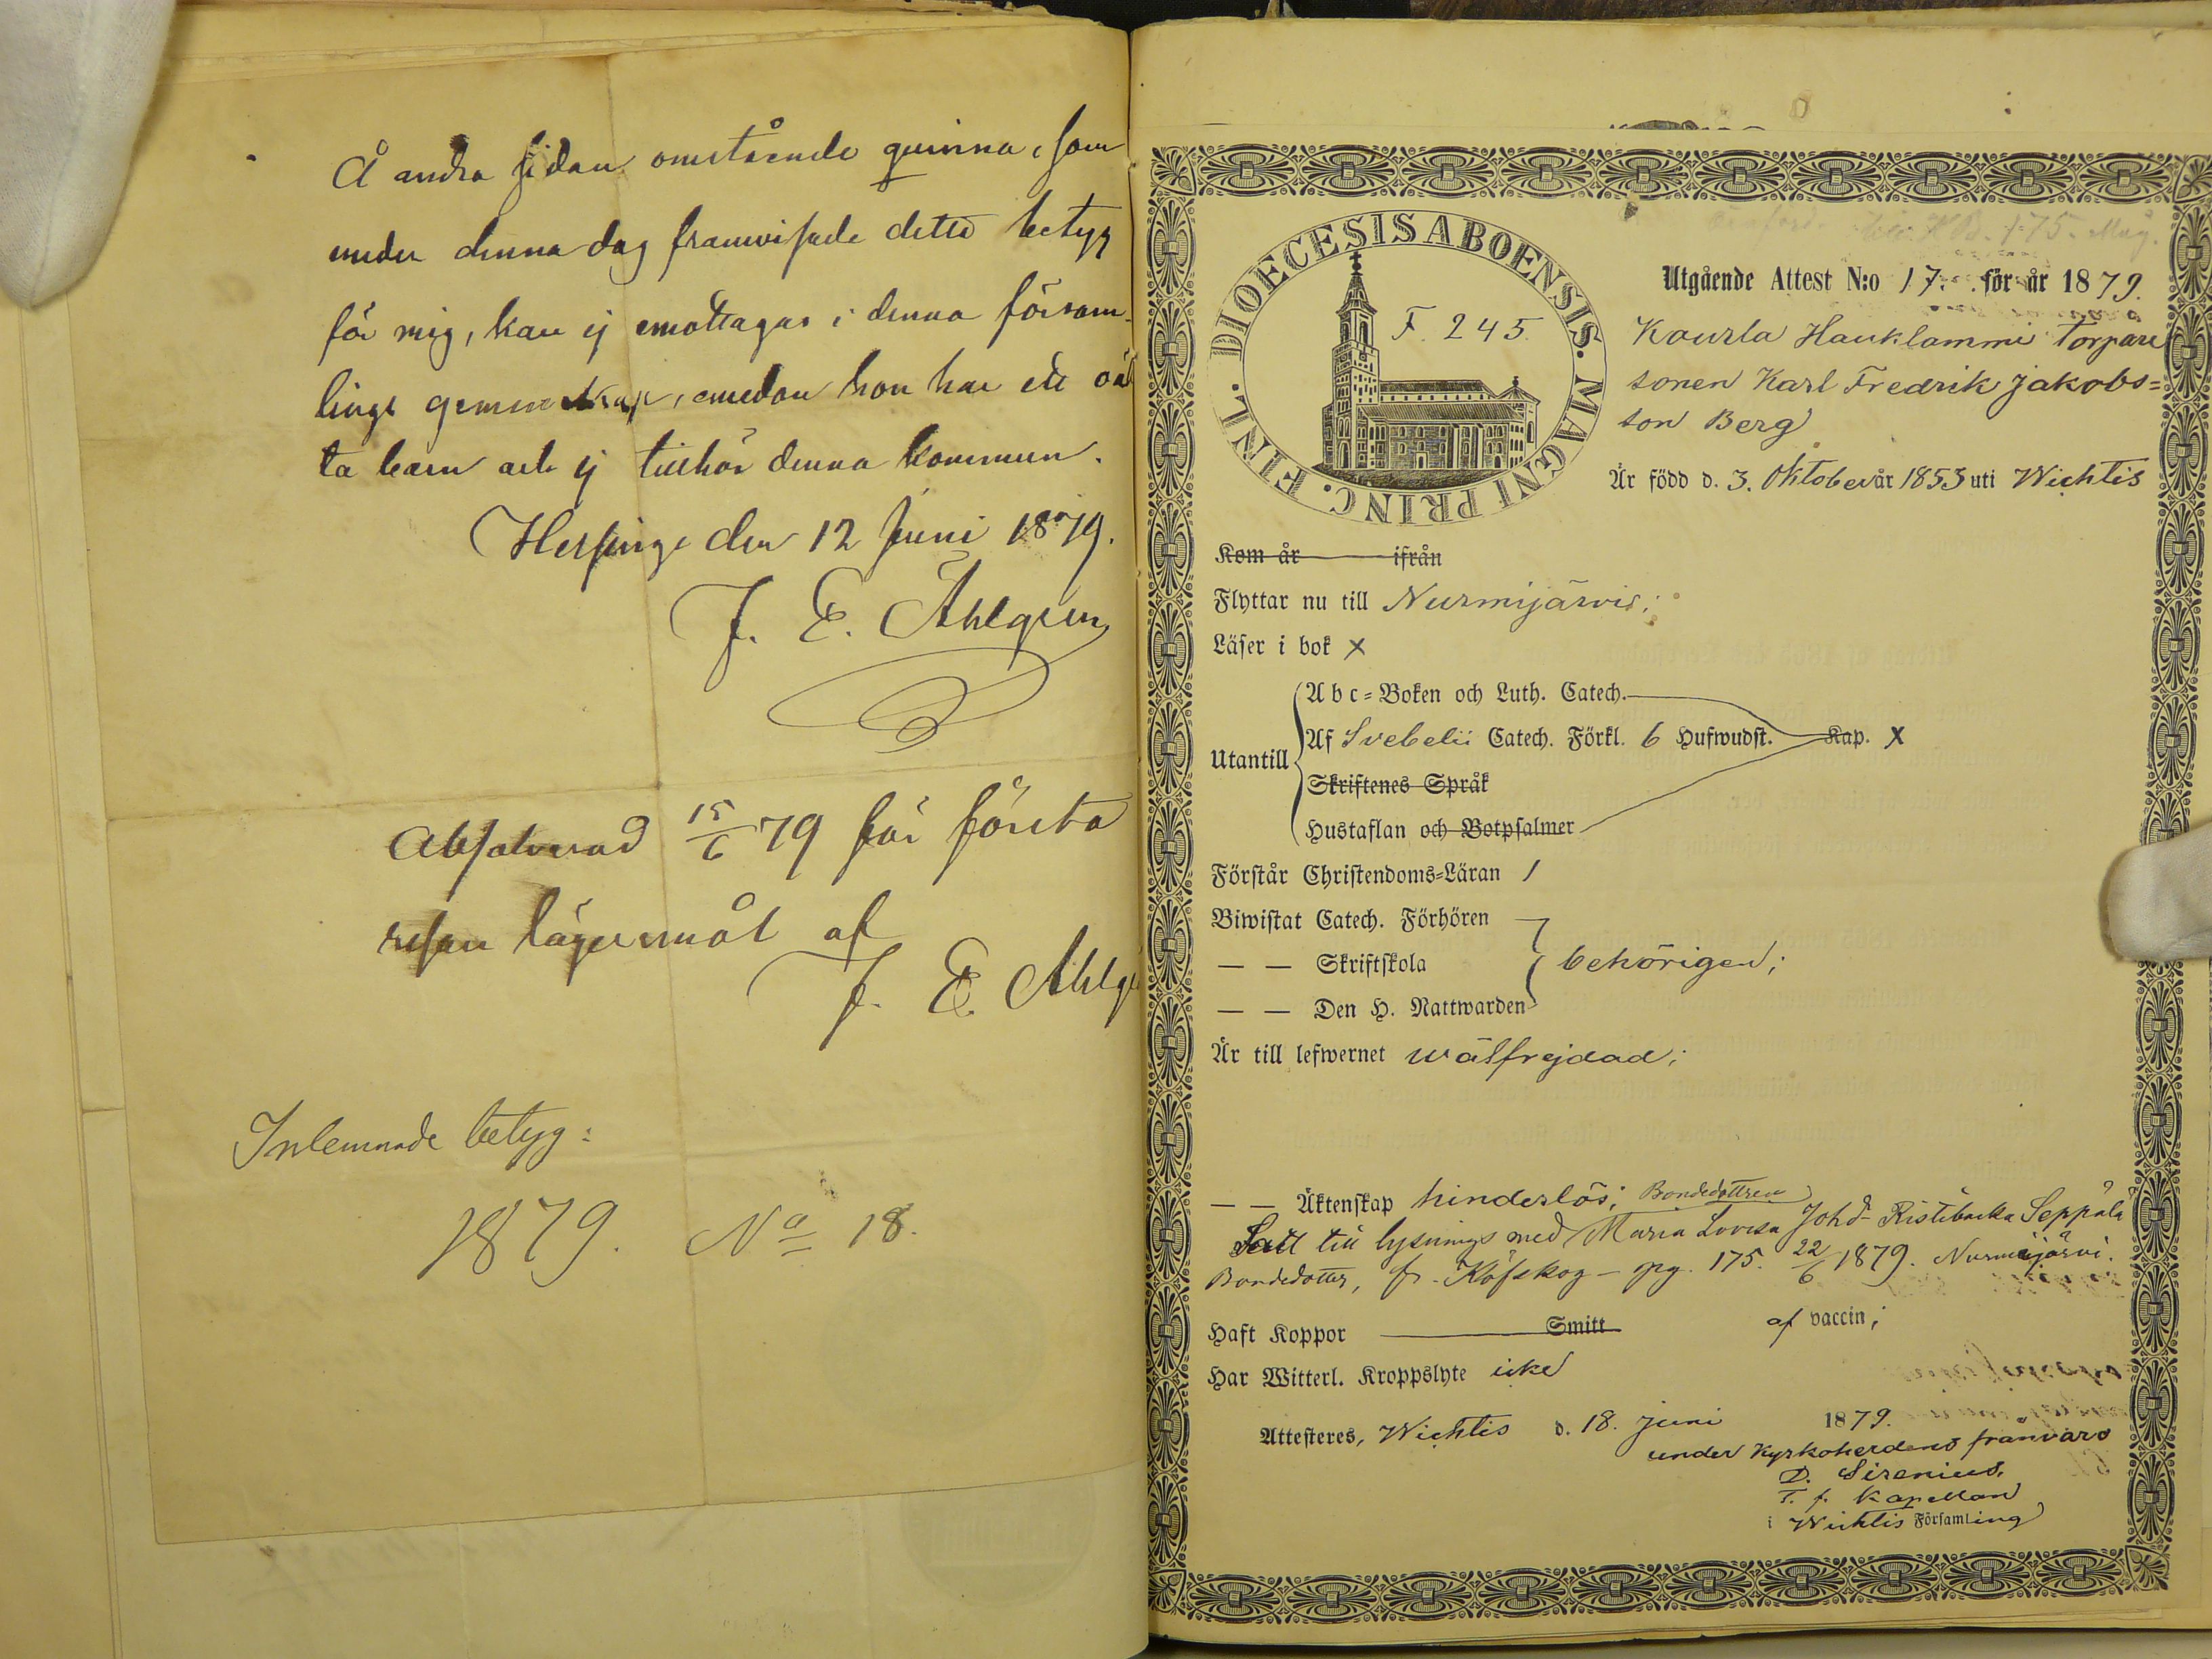 Å andra sidan omstående quinna, som
under denna dag framvisade detta betyg
för mig, kan ej emottagas i denna försam-
lings gemenskap, emedan hon har ett oäk
ta barn och ej tillhör denna kommun.
Helsinge den 12 Juni 1879.
J. E. Åhlgren
Absolverad 15/6 79 för första
resan lägersmål af
J. E. Åhlg
Inlemnade betyg:
1879. No 18.
DIOECESIS ABOENSIS. MAGNI PRINC. FINL.
F. 245.
H B. 175.
Utgående Attest N:o 17. för år 1879.
Kourla Hauklammi Torpare
sonen Karl Fredrik Jakobs=
son Berg
Är född d. 3. Oktober år 1853 uti Wichtis
Kom år ifrån
Flyttar nu till Nurmijärvi;
Läser i bok x
Utantill
Abc=Boken och Luth. Catech.
Af Svebelii Catech. Förkl. 6 Hufwudst. Kap. x
Skriftenes Språk
Hustaflan och Botpsalmer
Förstår Christendoms=Läran /
Biwistat Catech. Förhören
— — Skriftskola behörigen;
— — Den H. Nattwarden
Är till lefwernet wälfrejdad;
— — Äktenskap hinderlös; Bondedottren
Satt till lysnings med Maria Lovisa Johd Ristibacka Seppälä
Bondedotter, fr. Röfskog pg. 175. 22/6 1879. Nurmijärvi.
Haft Koppor Smitt af vaccin;
Har Witterl. Kroppslyte icke
Attesteres, Wichtis d. 18. Juni 1879.
under Kyrkoherdens frånvaro
D. Sirenius.
T. f. Kapellan
i Wichtis Församling